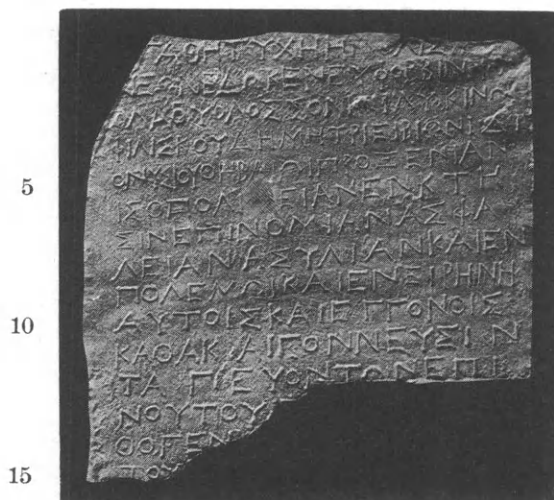 ΑΘΗΤΥΧΗΗ ΟΛΙΣ
ΝΕΩΝΕΔΩΚΕΝΕΥΘΟΡΒΙΝ
ΟΛΑΟΥΧΟΛΟΣΣΟΝ ΛΥΚΙΝΩ
ΙΛΙΣΚΟΥΔΗΜΗΤΡΙΕΙΡΙΚΩΝΙΔΙ
5 ΟΝΥΣΙΟΥΘΗΒΑΙΩΙΠΡΟΞΕΝΙΑΝ
ΙΣΟΠΟΛ ΕΙΑΝΕΝΚΤΗ
ΣΙΝΕΠΙΝΟΜΙΑΝΑΣΦΑ
ΛΕΙΑΝΑΣΥΛΙΑΝΚΑΙΕΝ
ΠΟΛΕΜΩΙΚΑΙΕΝΕΙΡΗΝΗ
10 ΑΥΤΟΙΣΚΑΙΕΓΓΟΝΟΙΣ
ΚΑΘΑΚ ΑΙΓΟΝΝΕΥΣΙΝ
ΤΑ ΓΕΥΟΝΤΩΝΕΠΙ
ΝΟΥΤΟΥ
ΘΟΓΕΝ
15